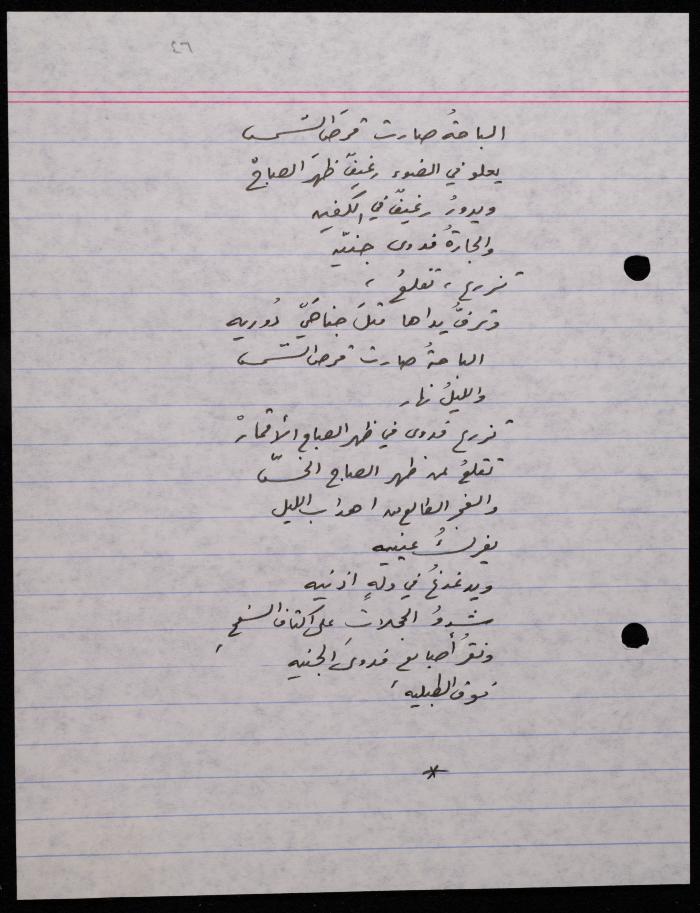 ٤٦
الباحةُ صارت قرصَ الشّمس
يعلو في الضوء رغيفٌ ظهرَ الصباحْ
ويدورُ رغيفٌ في الكفين
والجارةُ فدوى جنيّه
تزرع ، تقلعُ ،
وترفُّ يداها مثلَ جناحَيّ دُوريه
الباحةُ صارت قرص الشّمس
والليلُ نهار
تزرع فدوى في ظهر الصاج الأقمارْ
تقلعُ من ظهر الصاج الخسّ
والفجر الطالع من اهداب الليل
يفركُ عينيه
ويدغدغُ في ولهٍ اذنيه
شدوُ الحجلات على اكتاف السفح ،
ونقرُ أصابع فدوىَ الجنيه
فوق الطبليه ،
*